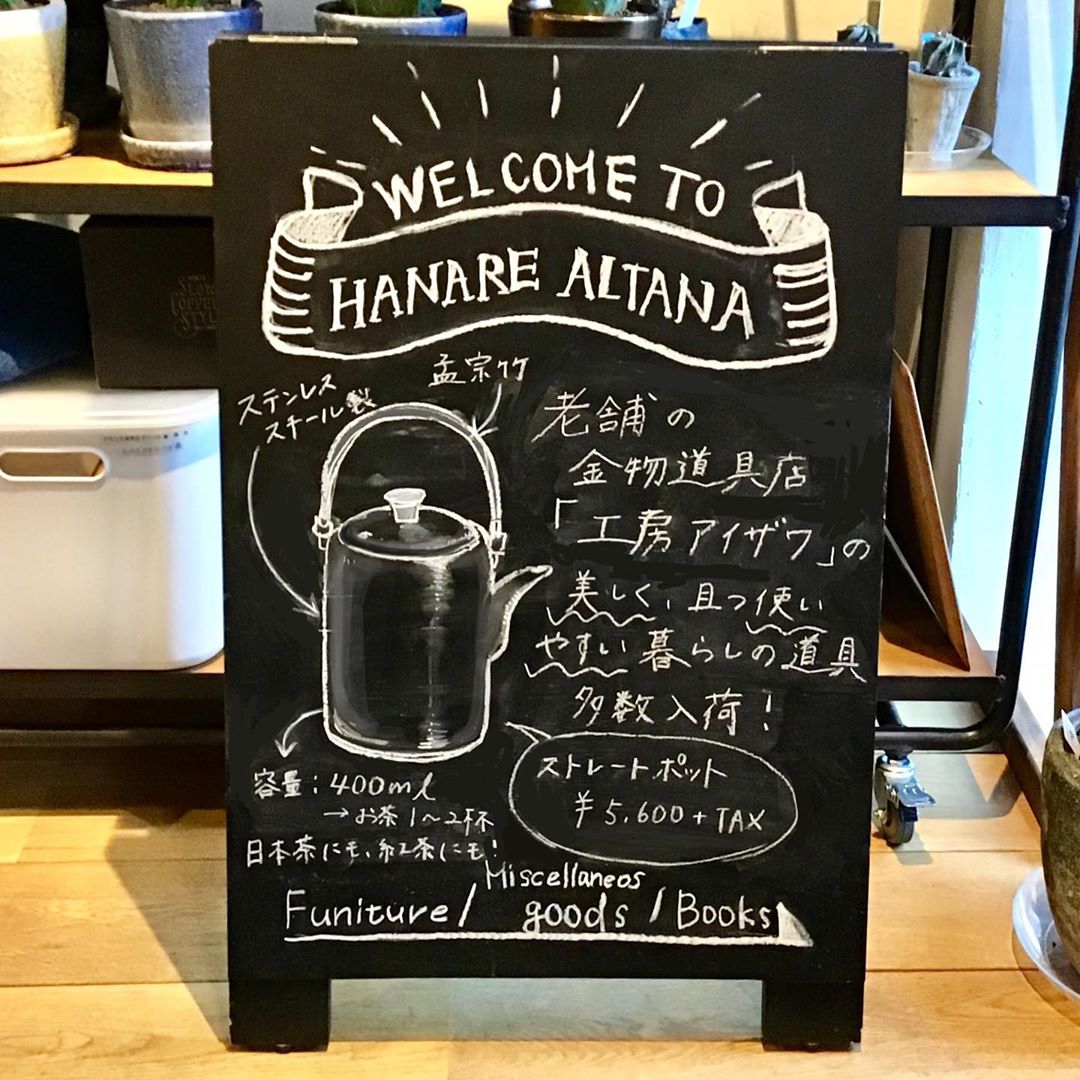 WELCOME TO
HANARE ALTANA
孟宗竹
ステンレス
スチール製
老舗の
金物道具店
「工房アイザワ」の
美しく、且つ使い
やすい暮らしの道具
多数入荷!
ストレートポット
¥5,600+TAX
容量:400ml
→お茶1〜2杯
日本茶にも、紅茶にも!
Miscellaneos
Funiture/ goods / Books